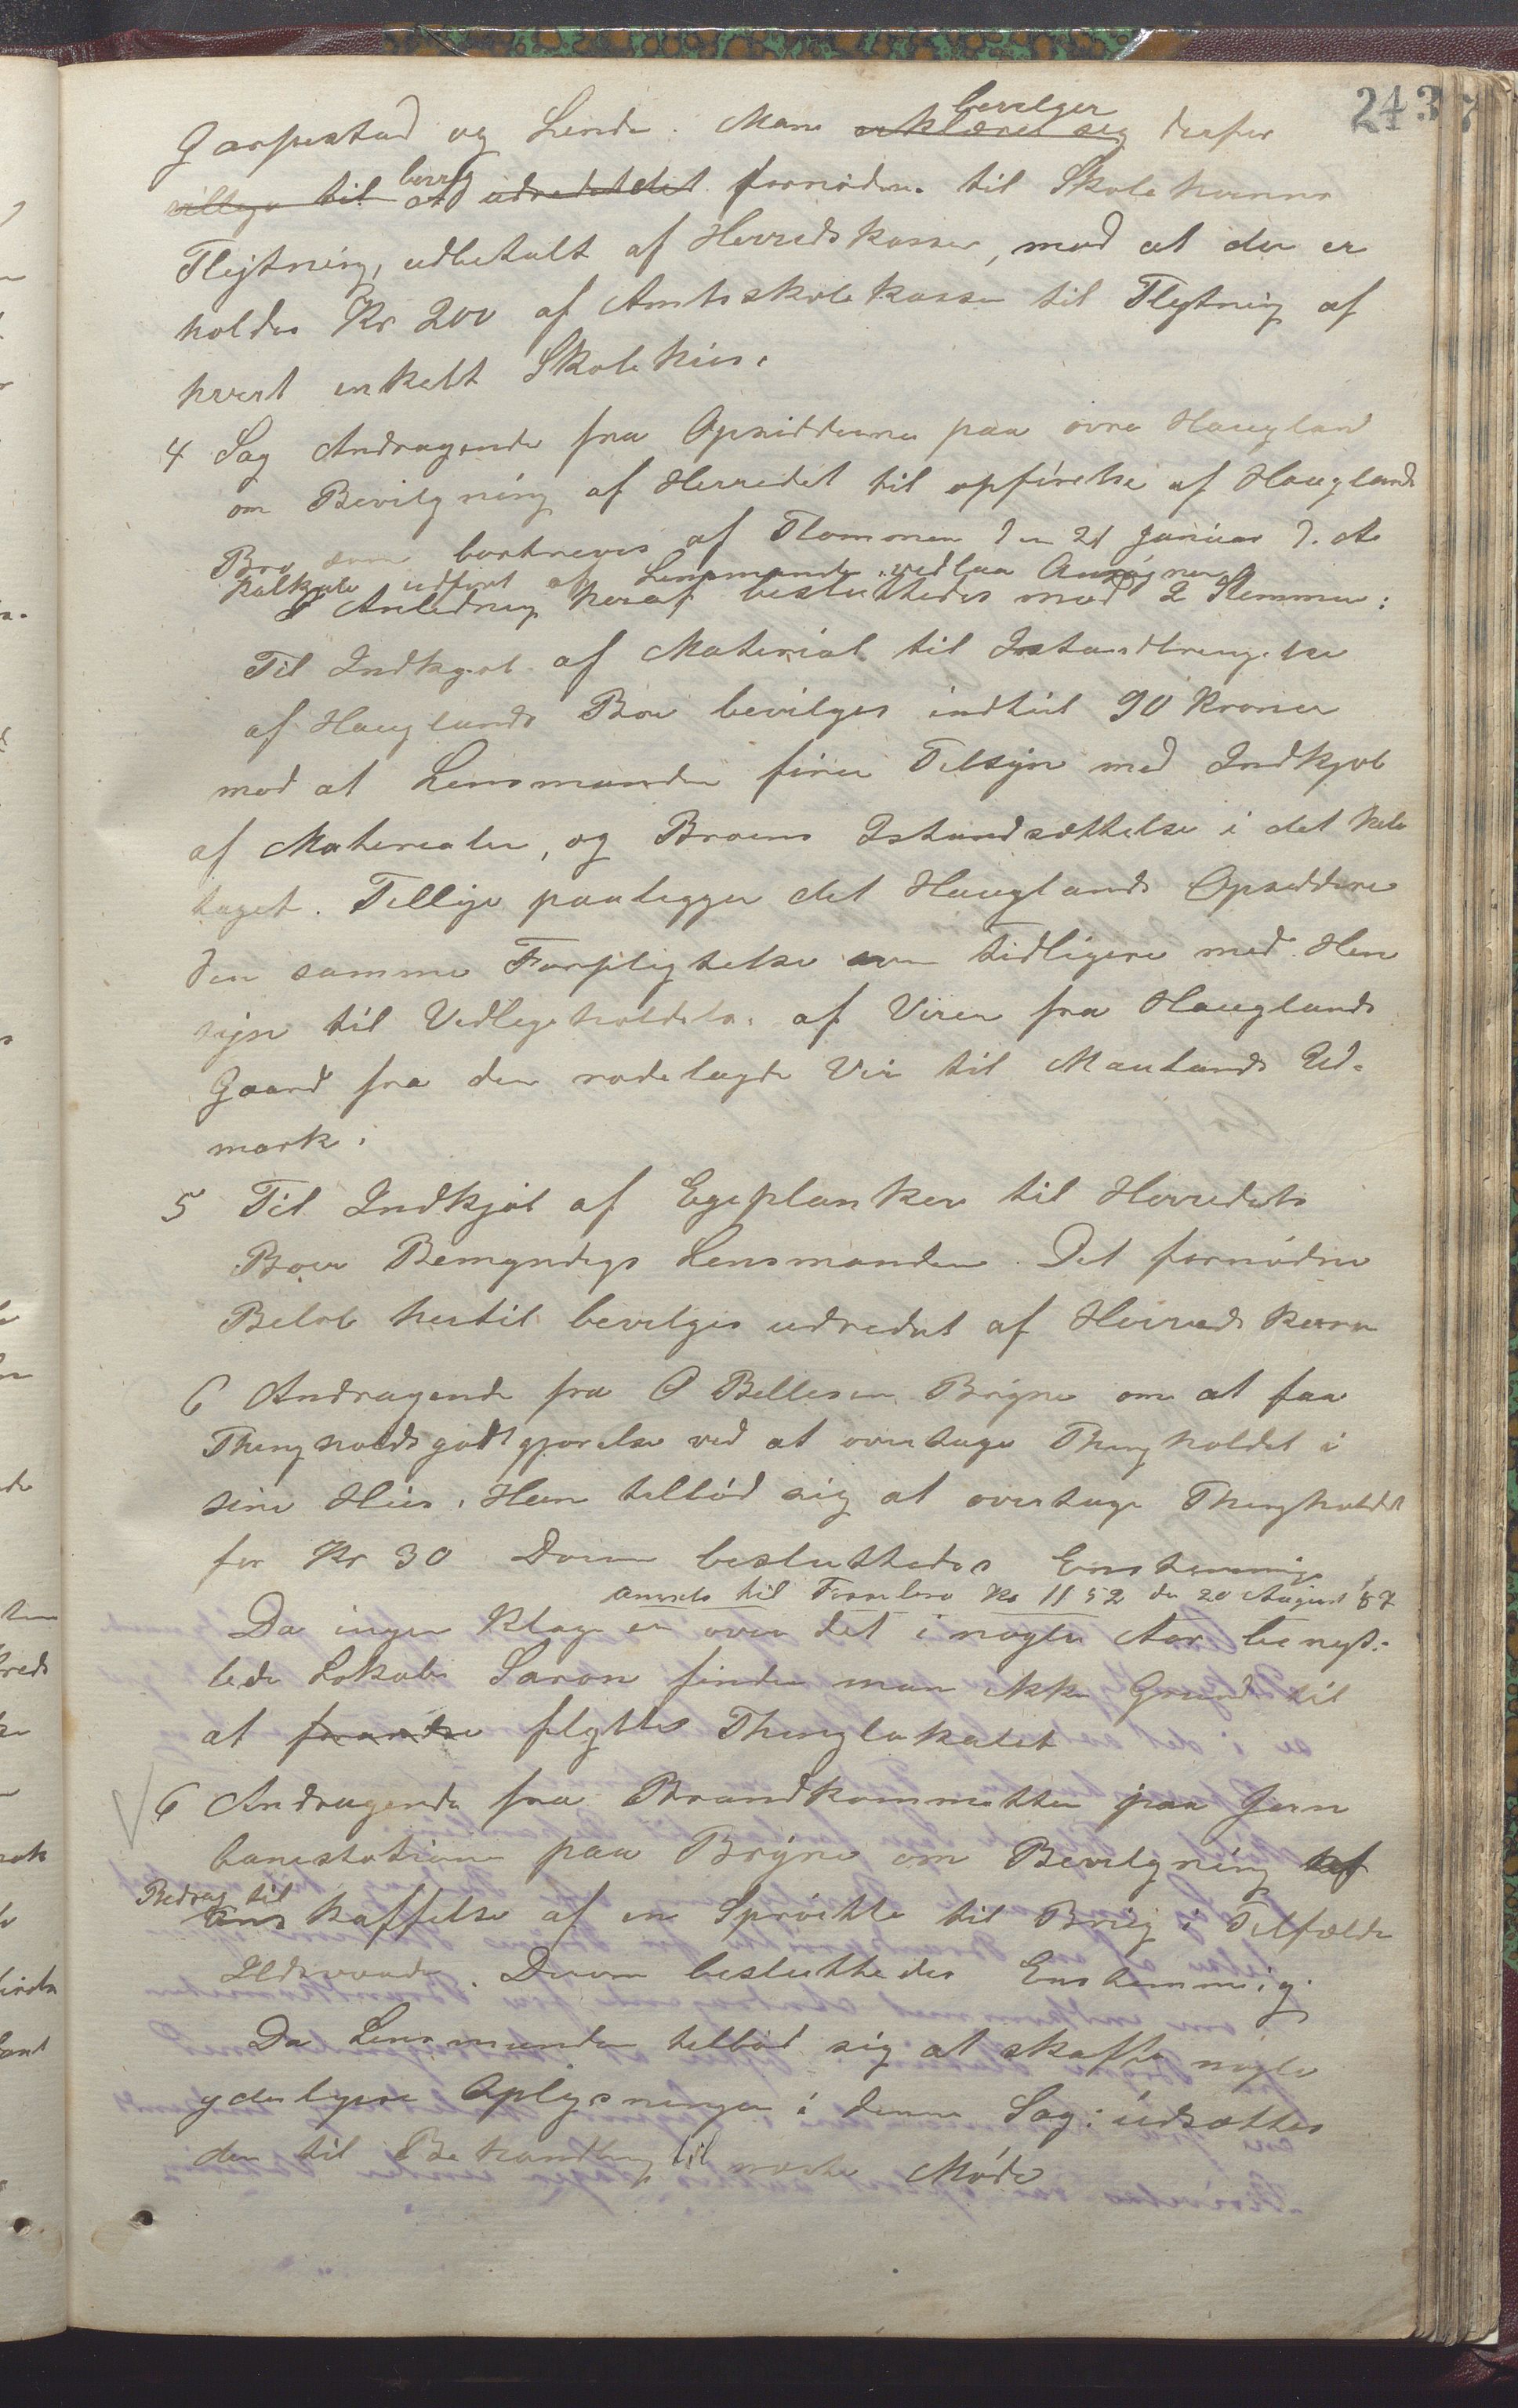 243
Garpestad og Linde. Man erklærer sig bevelger derfor
villige til at udredet det fornødne til Skolehusenes
Fløjtning, udbetalt af Herredskassen, mod at der er
holdes Kr 200 af Amtsskolekassen til Fløtning af
hvert enkelt Skolehus.
4 Sag Andragende fra Opsidderne paa øvre Haugland
om Bevilgning af Herredet til opførelse af Hauglands
Bro som bortreves af Flommen den 21 Januar d. A
Kalkyle udført af Lensmanden vedlaa Ansøgningen
I Anledning heraf besluttedes mod 2 Stemmer:
Til Indkjøb af Material til Istandbringelse
af Hauglands Bro bevilges indtil 90 Kroner
mod at Lensmanden fører Tilsyn med Indkjøb
af Materialer, og Broens Istandsættelse i det hele
taget. Tillige paalegger det Hauglands Opsiddere
den samme Forpligtelse som tidligere med Hen
syn til Vedligeholdelse af Veien fra Hauglands
Gaard fra den rodelagde Vei til Maulands Ud-
mark.
5 Til Indkjøb af Egeplanker til Herredets
Broer Bemyndiges Lensmanden. Det fornødne
Beløb hertil bevilges udredet af Herredskassen
6 Andragende fra O Bellesen Bryne om at faa
Thingholdsgodtgjørelse ved at overtage Thingholdet i
sine Huus. Han tilbød sig at overtage Thingholdet
for Kr 30 Derom besluttedes Enstemmig
til Kr 11 52 den 20 August 87
Da ingen Klage er over det i nogle Aar benyt-
tede Lokale Saron finder man ikke Grund til
at flytte Thinglokalet
6 Andragende fra Brandkommitten paa Jern
banestationen paa Bryne om Bevilgning af
Bedrag til
Anskaffelse af en Sprøitte til Brug i Tilfælde
Ildsvaade. Derom besluttedes Enstemmig.
Da Lensmanden tilbød sig at skaffe nogle
yderligere Oplysninger i denne Sag: udsættes
den til Behandling til næste Møde